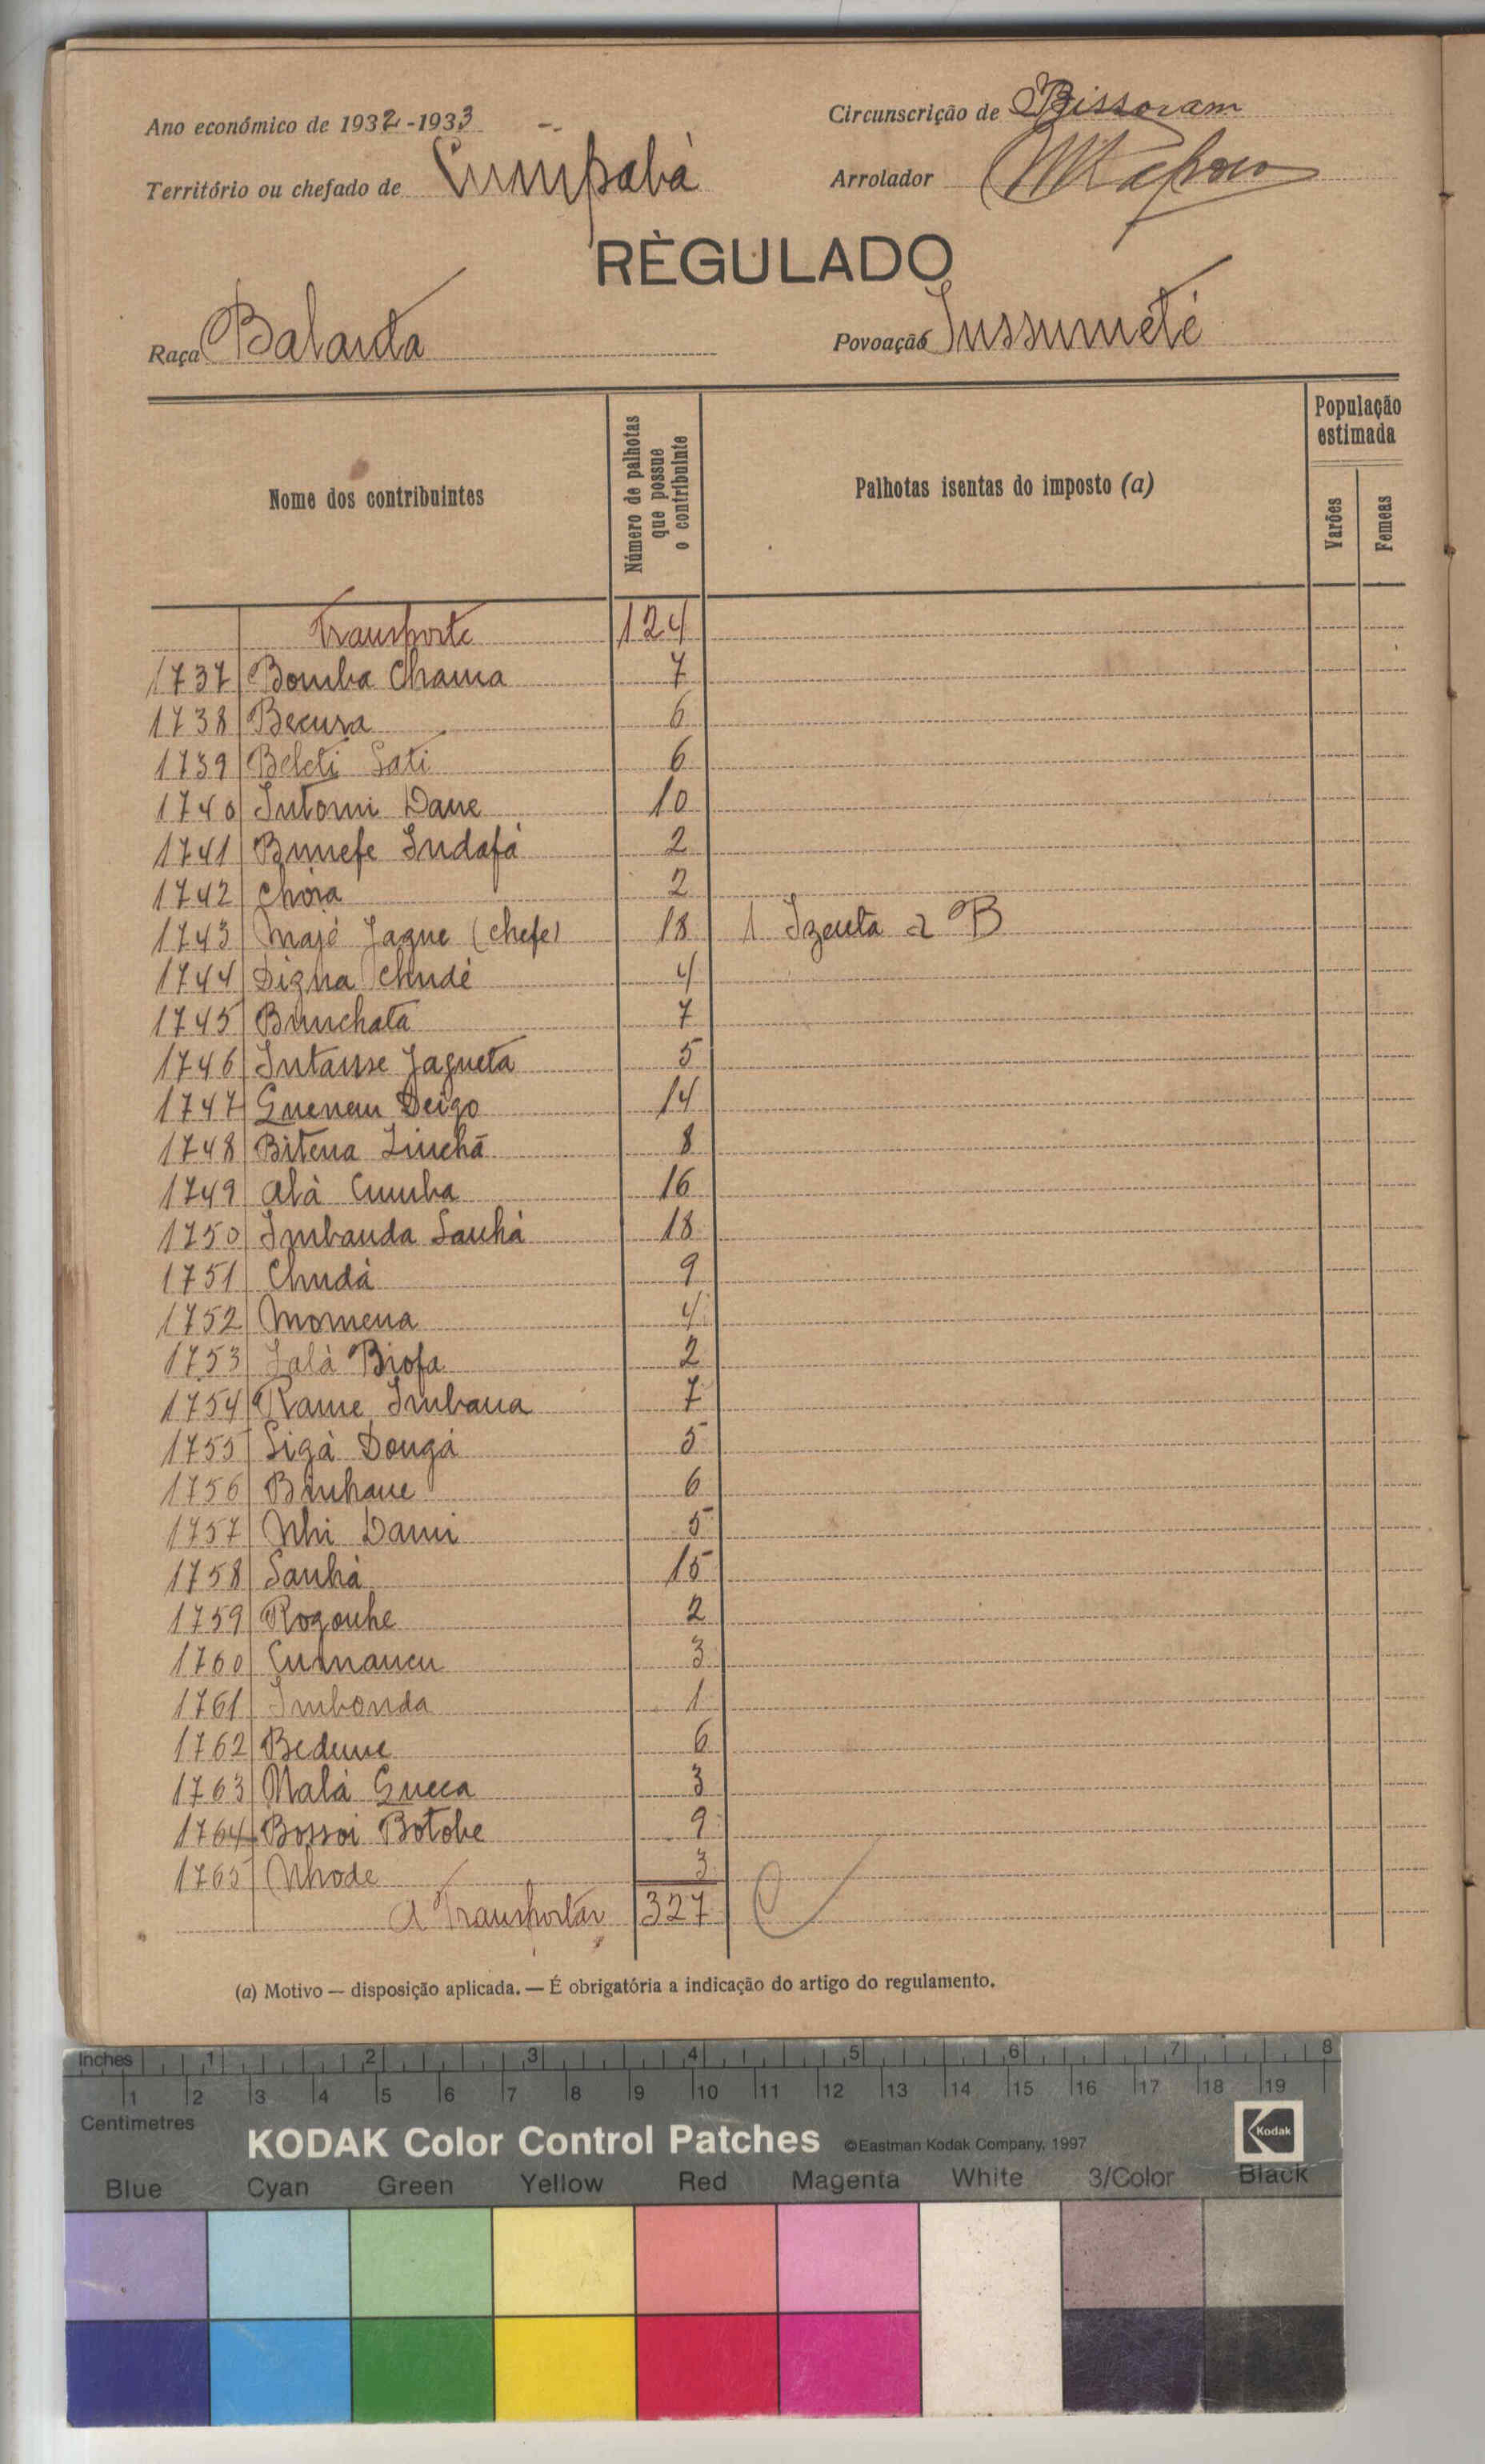 Ano económico de 1932-1933
Circunscrição de Bissoram
Território ou chefado de Cumpabá
Arrolador
RÈGULADO
Raça Balanta
Povoação Jussumeté
Nome dos contribuintes
Número de palhotas que possue o contribuinte
Palhotas isentas do imposto (a)
População estimada
Varões
Femeas
Transporte 124
1737 Bomba Chama 7
1738 Becusa 6
1739 Beleti Sati 6
1740 Intomi Dane 10
1741 Bunefe Indafá 2
1742 Chóra 2
1743 Majé Jague (chefe) 18 1 Izenta 2 B
1744 Digna Chudé 4
1745 Bunchata 7
1746 Intansse Jagueta 5
1747 Guenem Deigo 14
1748 Bitena Linchã 8
1749 Alà Cumba 16
1750 Imbanda Sanhá 18
1751 Chudá 9
1752 Momena 4
1753 Lalà Biofa 2
1754 Rame Imbana 7
1755 Sigà Dongá 5
1756 Binhane 6
1757 Nhi Dami 5
1758 Sanhá 15
1759 Rogonhe 2
1760 Cumancu 3
1761 Imbonda 1
1762 Bedume 6
1763 Malá Gueca 3
1764 Bossoi Botche 9
1765 Nhode 3
A Transportar 327
(a) Motivo — disposição aplicada. — É obrigatória a indicação do artigo do regulamento.
Inches 1 2 3 4 5 6 7 8
1 2 3 4 5 6 7 8 9 10 11 12 13 14 15 16 17 18 19
Centimetres
KODAK Color Control Patches ©Eastman Kodak Company, 1997 Kodak
Blue Cyan Green Yellow Red Magenta White 3/Color Black